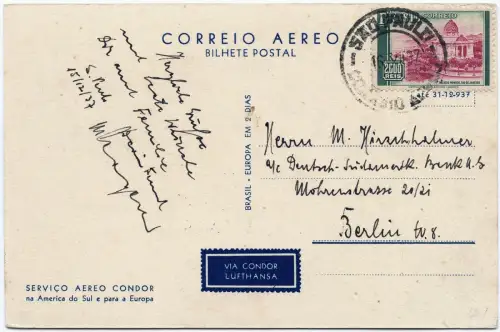 CORREIO AEREO
BILHETE POSTAL
SÃO PAULO
CORREIO
2000
REIS
até 31-12-937
S. Paulo
15/12/37
Herzliche Grüße
und
Dir und Familie
BRASIL - EUROPA EM 2 DIAS
Herrn M. Hirschhalmer
a/c Deutsch-Südamerik. Bank A.G.
Mohrenstrasse 20/21
Berlin W.8.
VIA CONDOR
LUFTHANSA
SERVIÇO AEREO CONDOR
na America do Sul e para a Europa